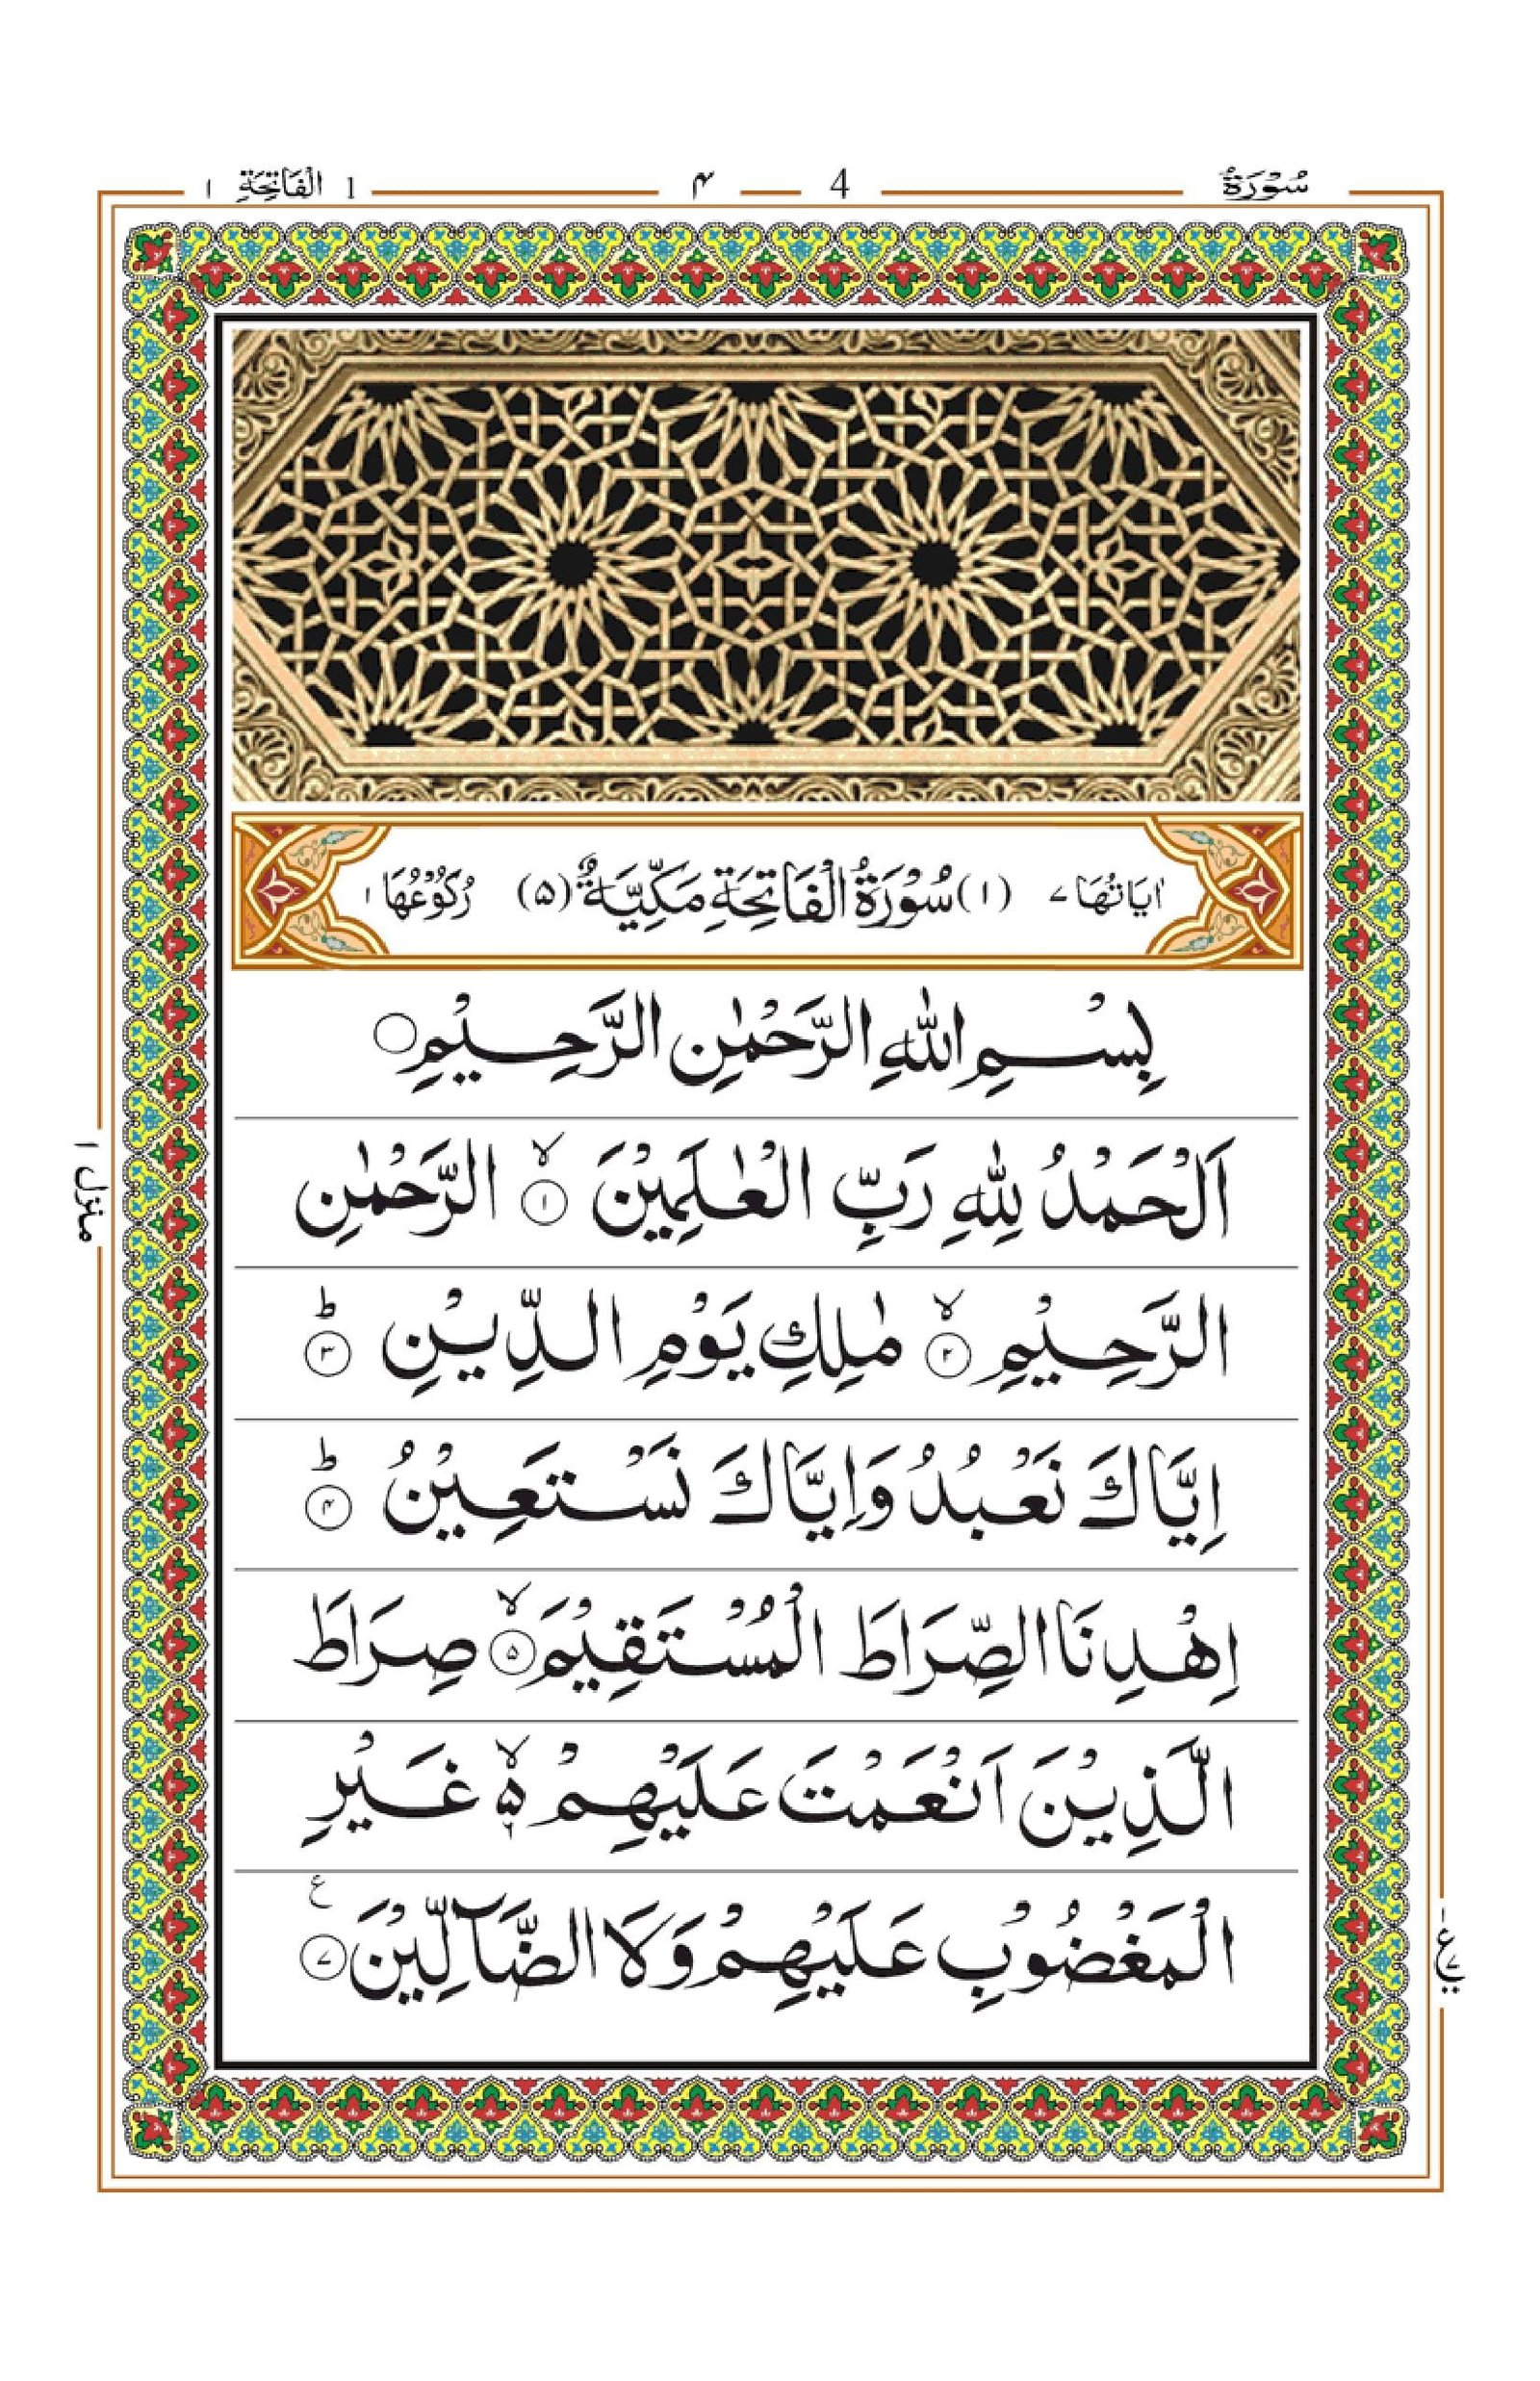 سُوْرَةُ 4 ۴ 1 الْفَاتِحَةِ ۱
اٰيَاتُهَا ۷ (۱) سُوْرَةُ الْفَاتِحَةِ مَكِّيَّةٌ (۵) رُكُوْعُهَا ۱
بِسْمِ اللّٰهِ الرَّحْمٰنِ الرَّحِيْمِ ۝
اَلْحَمْدُ لِلّٰهِ رَبِّ الْعٰلَمِيْنَ ۙ﴿۱﴾ الرَّحْمٰنِ
الرَّحِيْمِ ۙ﴿۲﴾ مٰلِكِ يَوْمِ الدِّيْنِ ؕ﴿۳﴾
اِيَّاكَ نَعْبُدُ وَاِيَّاكَ نَسْتَعِيْنُ ؕ﴿۴﴾
اِهْدِنَا الصِّرَاطَ الْمُسْتَقِيْمَ ۙ﴿۵﴾ صِرَاطَ
الَّذِيْنَ اَنْعَمْتَ عَلَيْهِمْ ۙ۬ۥ غَيْرِ
الْمَغْضُوْبِ عَلَيْهِمْ وَلَا الضَّآلِّيْنَ ﴿۷﴾ ع
منزل ۱